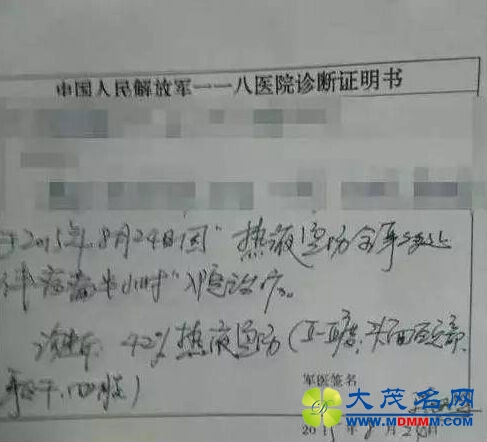 中国人民解放军一一八医院诊断证明书
于2015年8月24日因"热液烫伤全身多处
伴疼痛半小时"入院治疗。
诊断: 42%热液烫伤(II-III度,头面颈部、
躯干、四肢)
军医签名
201 年 月2 日
大茂名网
WWW.MDMMM.COM